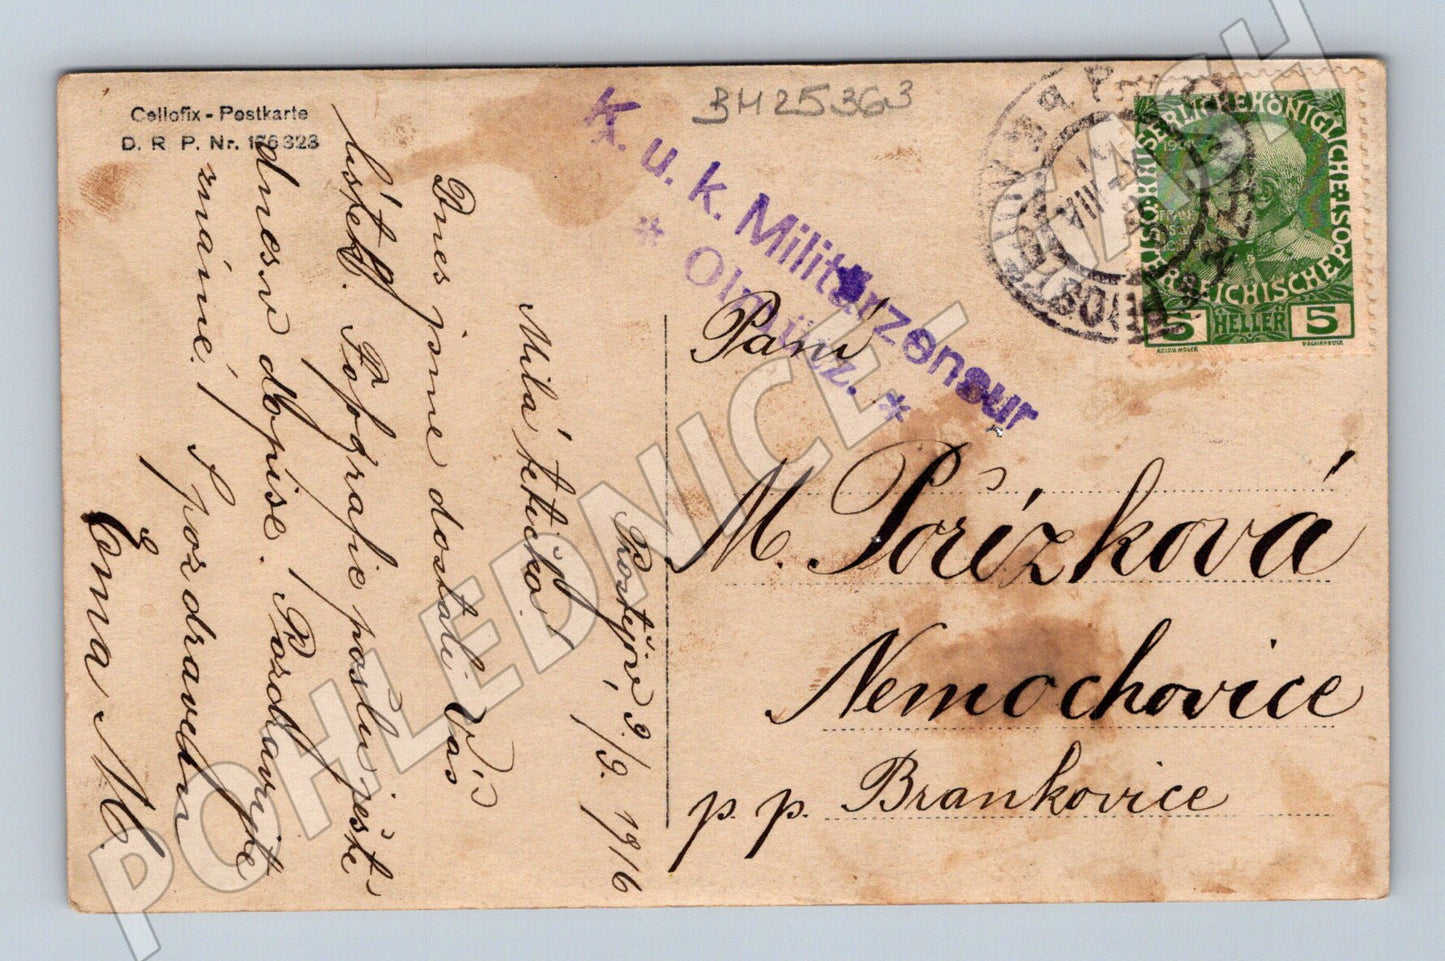 Cellofix - Postkarte
D. R. P. Nr. 176323
BM25363
K. u. k. Militärzensur
* Olmütz. *
ÖSTERR
KAISERLICHEKÖNIGLICHE POST
EICHISCHE
1908
5 HELLER 5
Prostějov 3./9. 1916
Milá tetičko!
Dnes jsme dostali Váš
lístek. Fotografie pošlu ještě
dnes v dopise. Pozdravujte
známé! S pozdravem
Ema M.
Paní
M. Pořízková
Nemochovice
p. p. Brankovice
POHLEDNICE